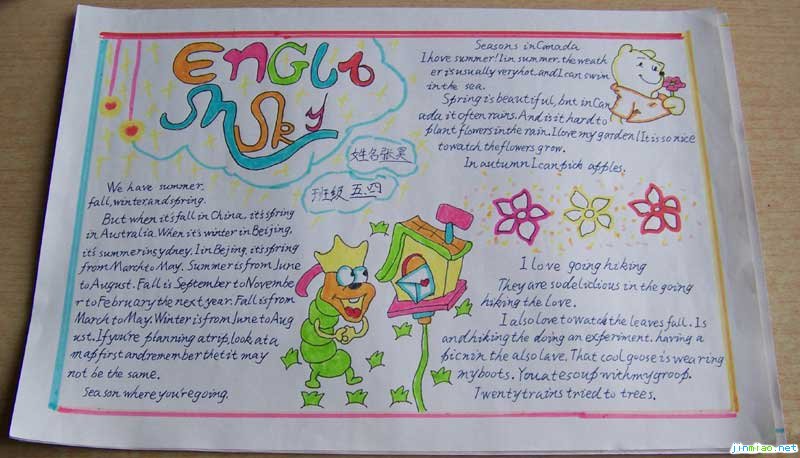 English
Sky
姓名 张昊
班级 五四
We have summer.
fall, winter, and spring.
But when it's fall in China, it's spring
in Australia. When it's winter in Beijing,
it's summer in sydney. I in Bejing, it's spring
from March to May. Summer is from June
to August. Fall is September to Novembe
r to February the next year. Fall is from
March to May. Winter is from June to Aug
ust. If you're planning a trip, look at a
map first and remember thet it may
not be the same.
Season where you're going.
Seasons in Canada
I hove summer! I in summer. the weath
er is usually very hot. and I can swim
in the sea.
Spring is beautiful, but in Can
ada it often rains. And is it hard to
plant flowers in the rain. I love my garden! It is so nice
to watch the flowers grow.
In autumn I can pick apples.
I love going hiking
They are so delicidious in the going
hiking the love.
I also love to watch the leaves fall. Is
and hiking the doing an experiment. having a
picnin the also lave. That cool goose is wearing
my boots. You ate soup with my groop.
Twenty trains tried to trees.
jinmiao.net